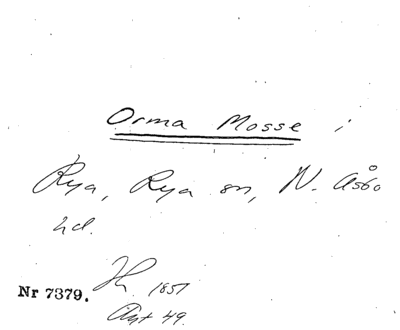 Orma Mosse i
Rya, Rya sn, N. Åsbo
hd.
Nr 7379.
1851
49